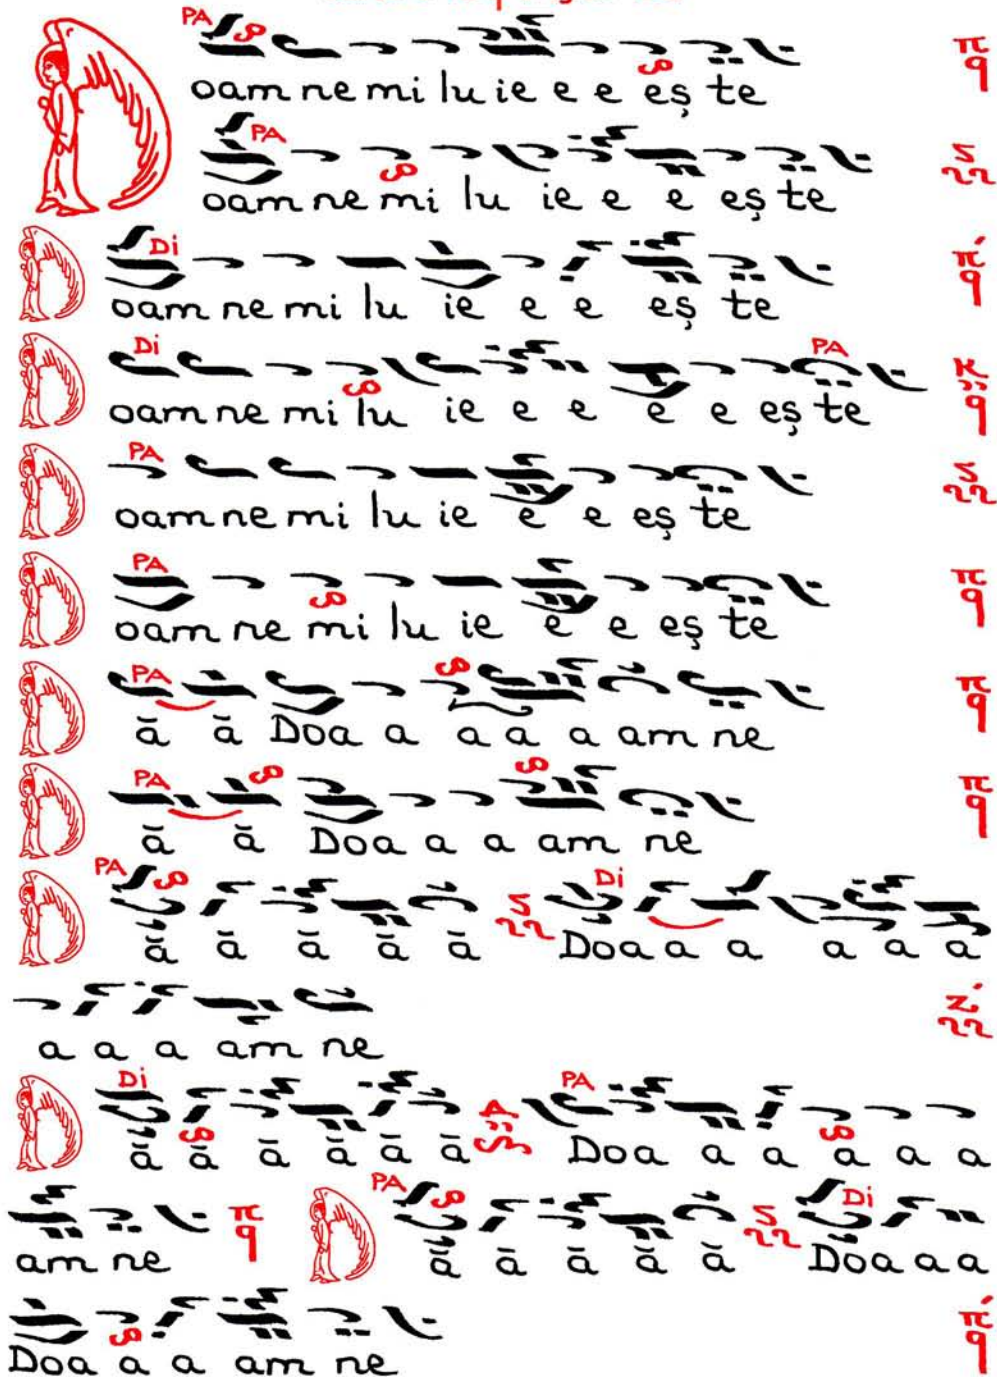 PA
oam ne mi lu ie e e eş te
PA
oam ne mi lu ie e e eş te
Di
oam ne mi lu ie e e eş te
Di PA
oam ne mi lu ie e e e e eş te
PA
oam ne mi lu ie e e eş te
PA
oam ne mi lu ie e e eş te
PA
ă ă Doa a a a a am ne
PA
ă ă Doa a a am ne
PA Di
ă ă ă ă ă Doa a a a a a
a a a am ne
Di PA
ă ă ă ă ă ă Doa a a a a a
PA Di
am ne ă ă ă ă ă Doa a a
Doa a a am ne